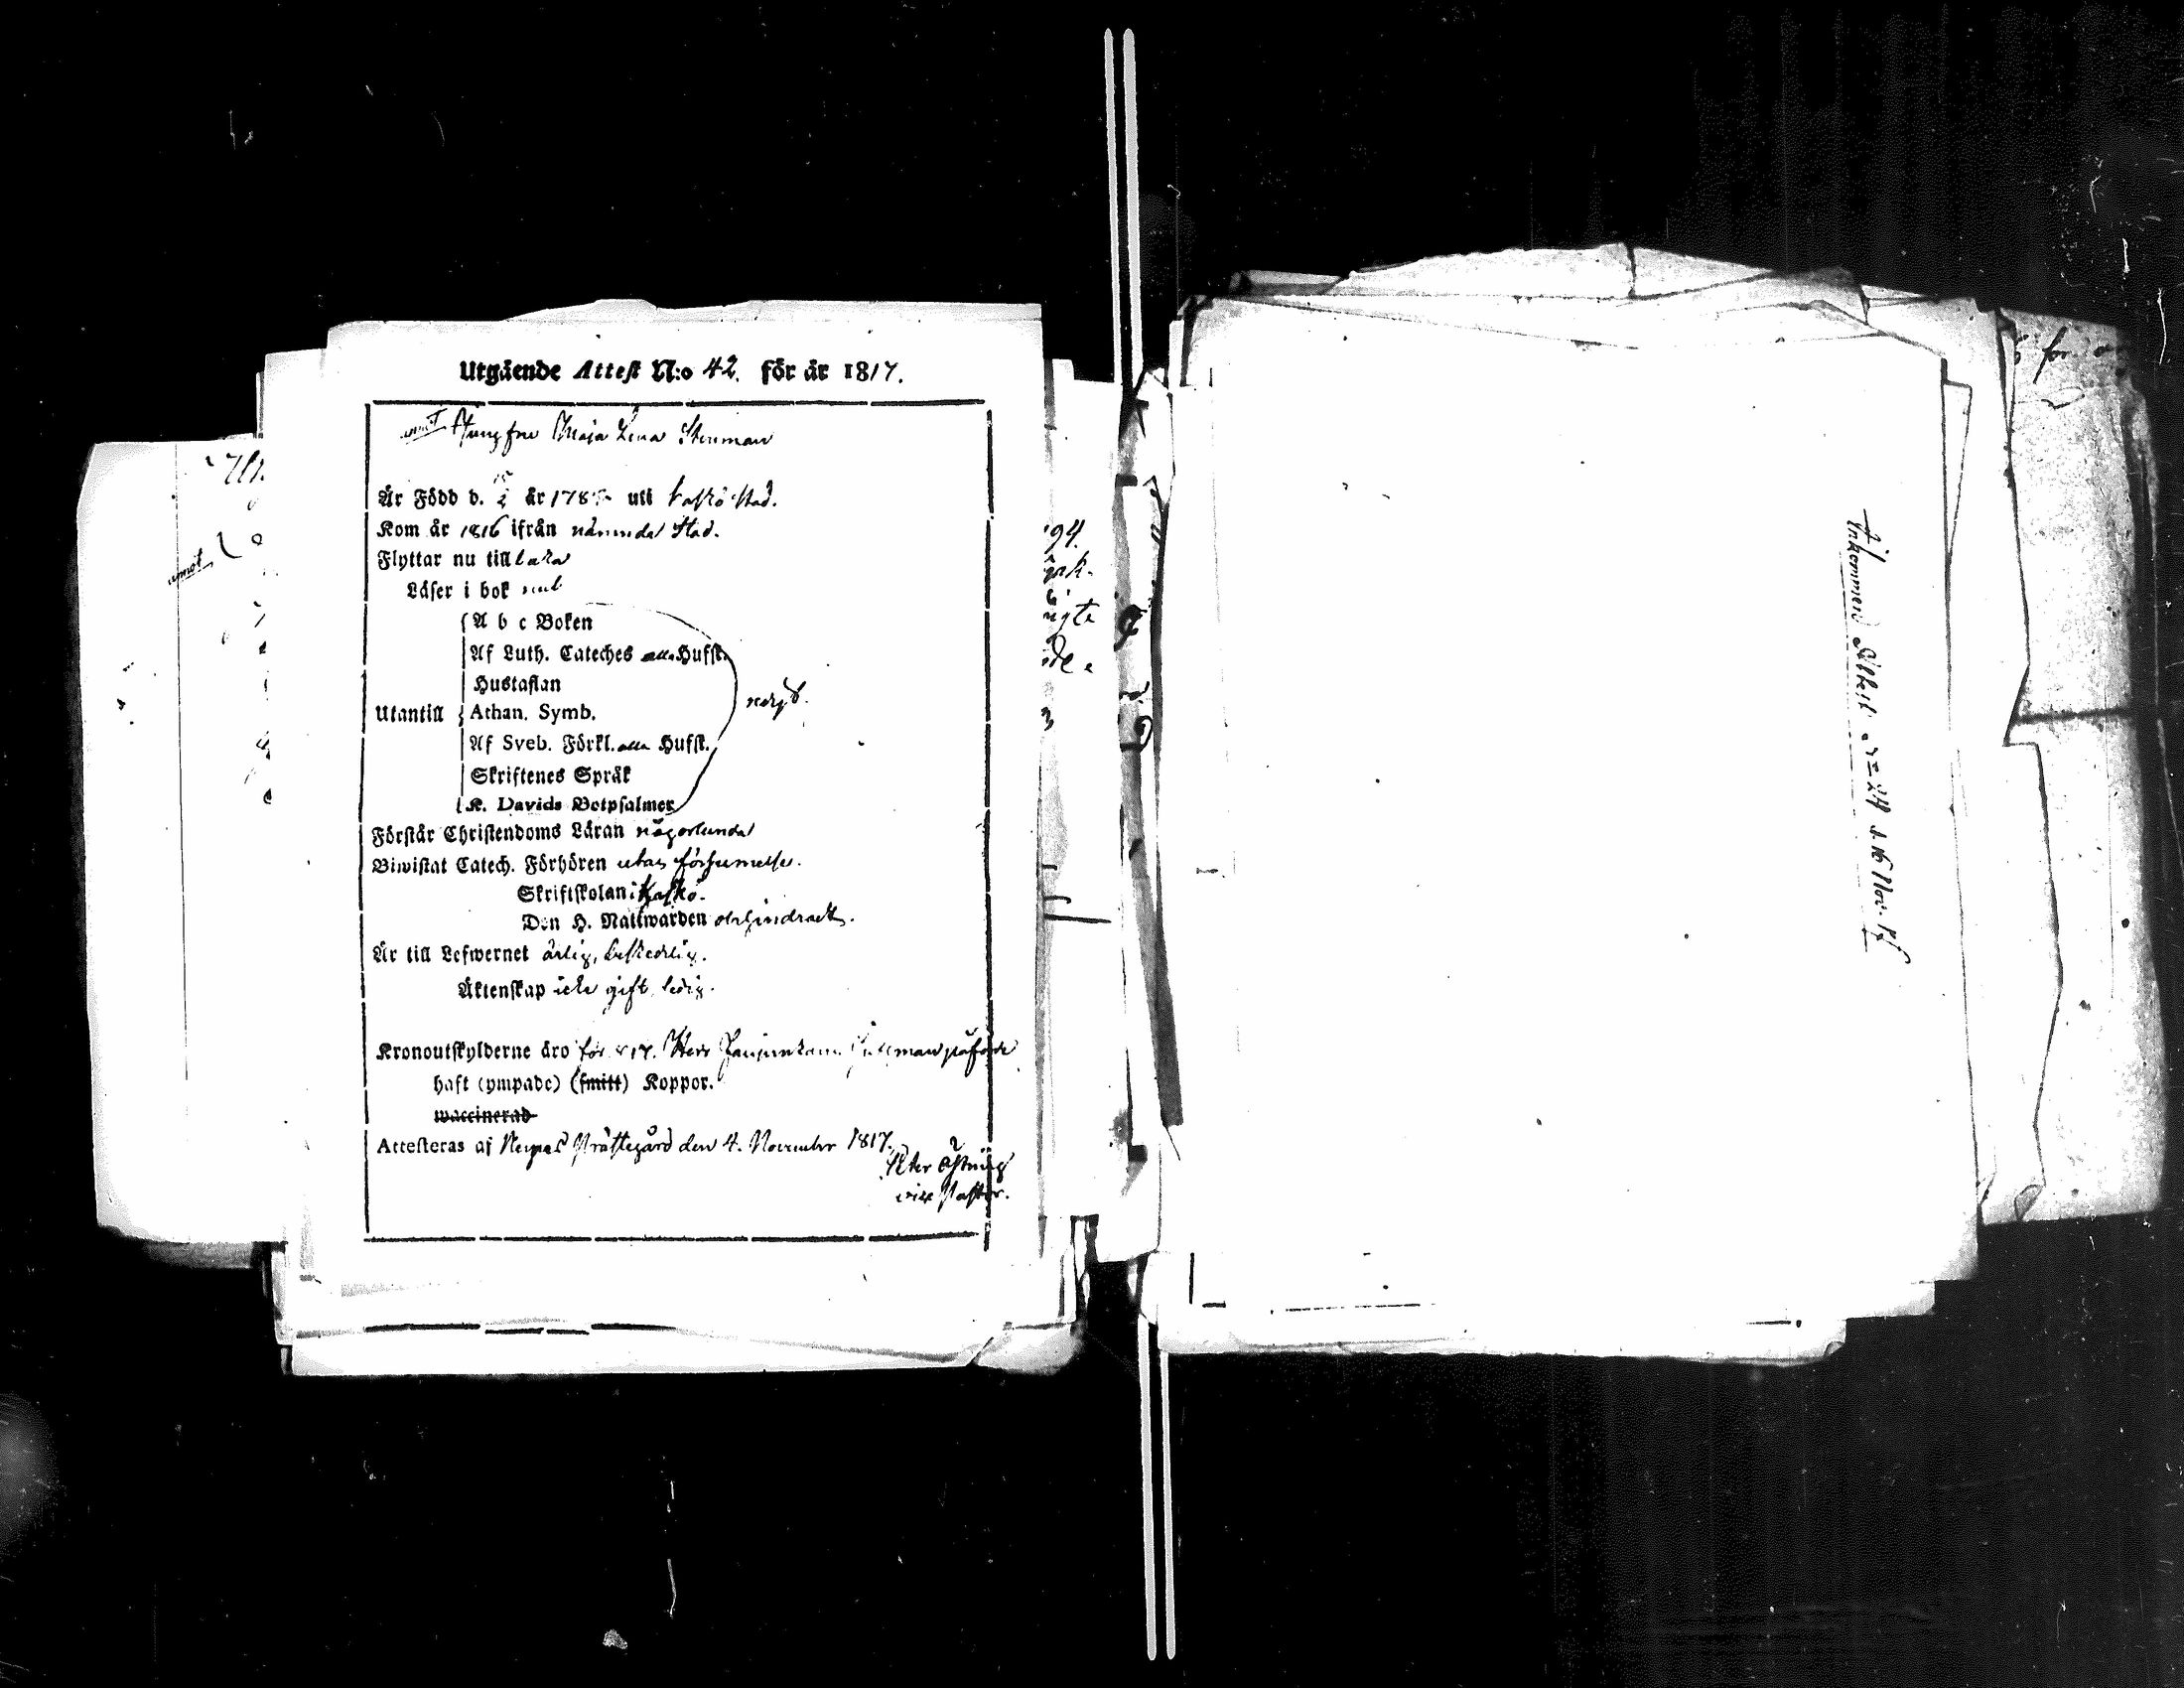 Utgående Attest N:o 42. för år 1817.
Jungfru Maja Lena Stenman
Är Född d. 15/2 år 178 uti Kaskö stad.
Kom år 1816 ifrån nämnda Stad.
Flyttar nu till
Läser i bok
A b c Boken
Af Luth. Cateches alla Hufst.
Hustaflan
Utantill Athan. Symb.
Af Sveb. Förkl. alla Hufst.
Skriftenes Språk
K. Davids Botpsalmer
Förstår Christendoms Läran någorlunda
Biwistat Catech. Förhören utan försummelse.
Skriftskolan i Kaskö.
Den H. Nattwarden obehindradt.
Är till Lefwernet ärlig, beskedlig.
Äktenskap icke gift, ledig.
Kronoutskylderne äro för 817. Herr påförde
haft (ympade) (smitt) Koppor.
waccinerad
Attesteras af Nerpes Prästegård den 4. November 1817.
Peter Åström
vice Pastor.
Inkommen Attest N:o 24 d. 16 Nov. 17
94.